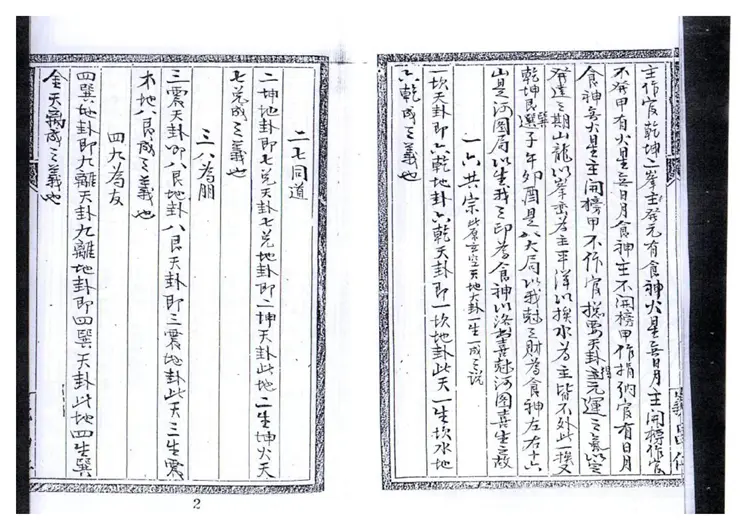 主作官乾坤二峯主發元有食神火星無日月主開榜作官
不發甲有火星無日月食神主不開榜甲作捐納官有日月
食神無火星主開榜甲不作官總要天卦逢元運之氣以定
發達之期山龍以峯巒為主平洋以挨水為主皆不外此一挨又
乾坤艮巽選子午卯酉是八大局以我尅之財為食神左右十六
山是河圖局以生我之印為食神以洛書喜尅河圖喜生之故
一六共宗 此段玄空天地大卦一生一成之說
一坎天卦即六乾地卦六乾天卦即一坎地卦此天一生坎水地
六乾成之義也
二七同道
二坤地卦即七兌天卦七兌地卦即二坤天卦此地二生坤火天
七兌成之義也
三八為朋
三震天卦即八艮地卦八艮天卦即三震地卦此天三生震
木地八艮成之義也
四九為友
四巽地卦即九離天卦九離地卦即四巽天卦此地四生巽
金天九離成之義也
2